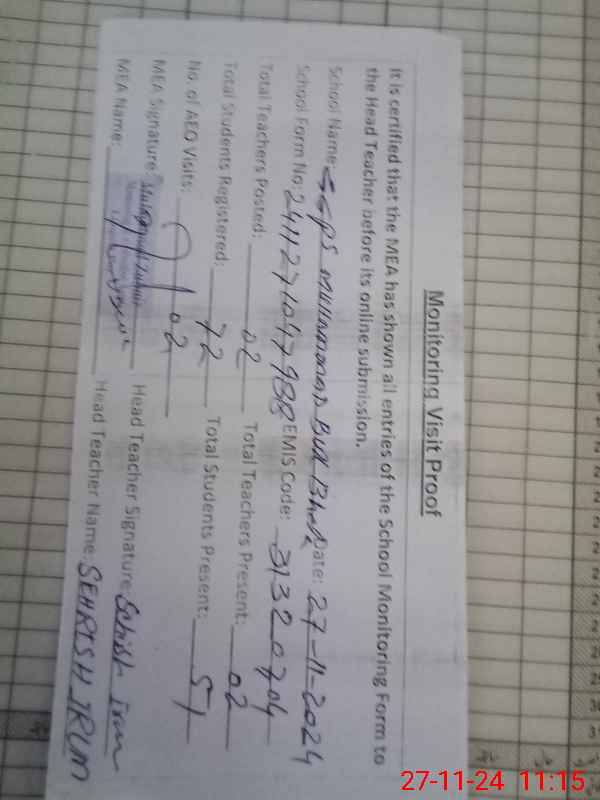 Monitoring Visit Proof
It is certified that the MEA has shown all entries of the School Monitoring Form to
the Head Teacher before its online submission.
School Name: GGPS MUHAMMAD BUX Date: 27-11-2024
School Form No: EMIS Code: 31320704
Total Teachers Posted: 02 Total Teachers Present: 02
Total Students Registered: 72 Total Students Present: 51
No. of AEO Visits: 02
MEA Signature: Head Teacher Signature: Sehrish Irum
MEA Name: Head Teacher Name: SEHRISH IRUM
27-11-24 11:15